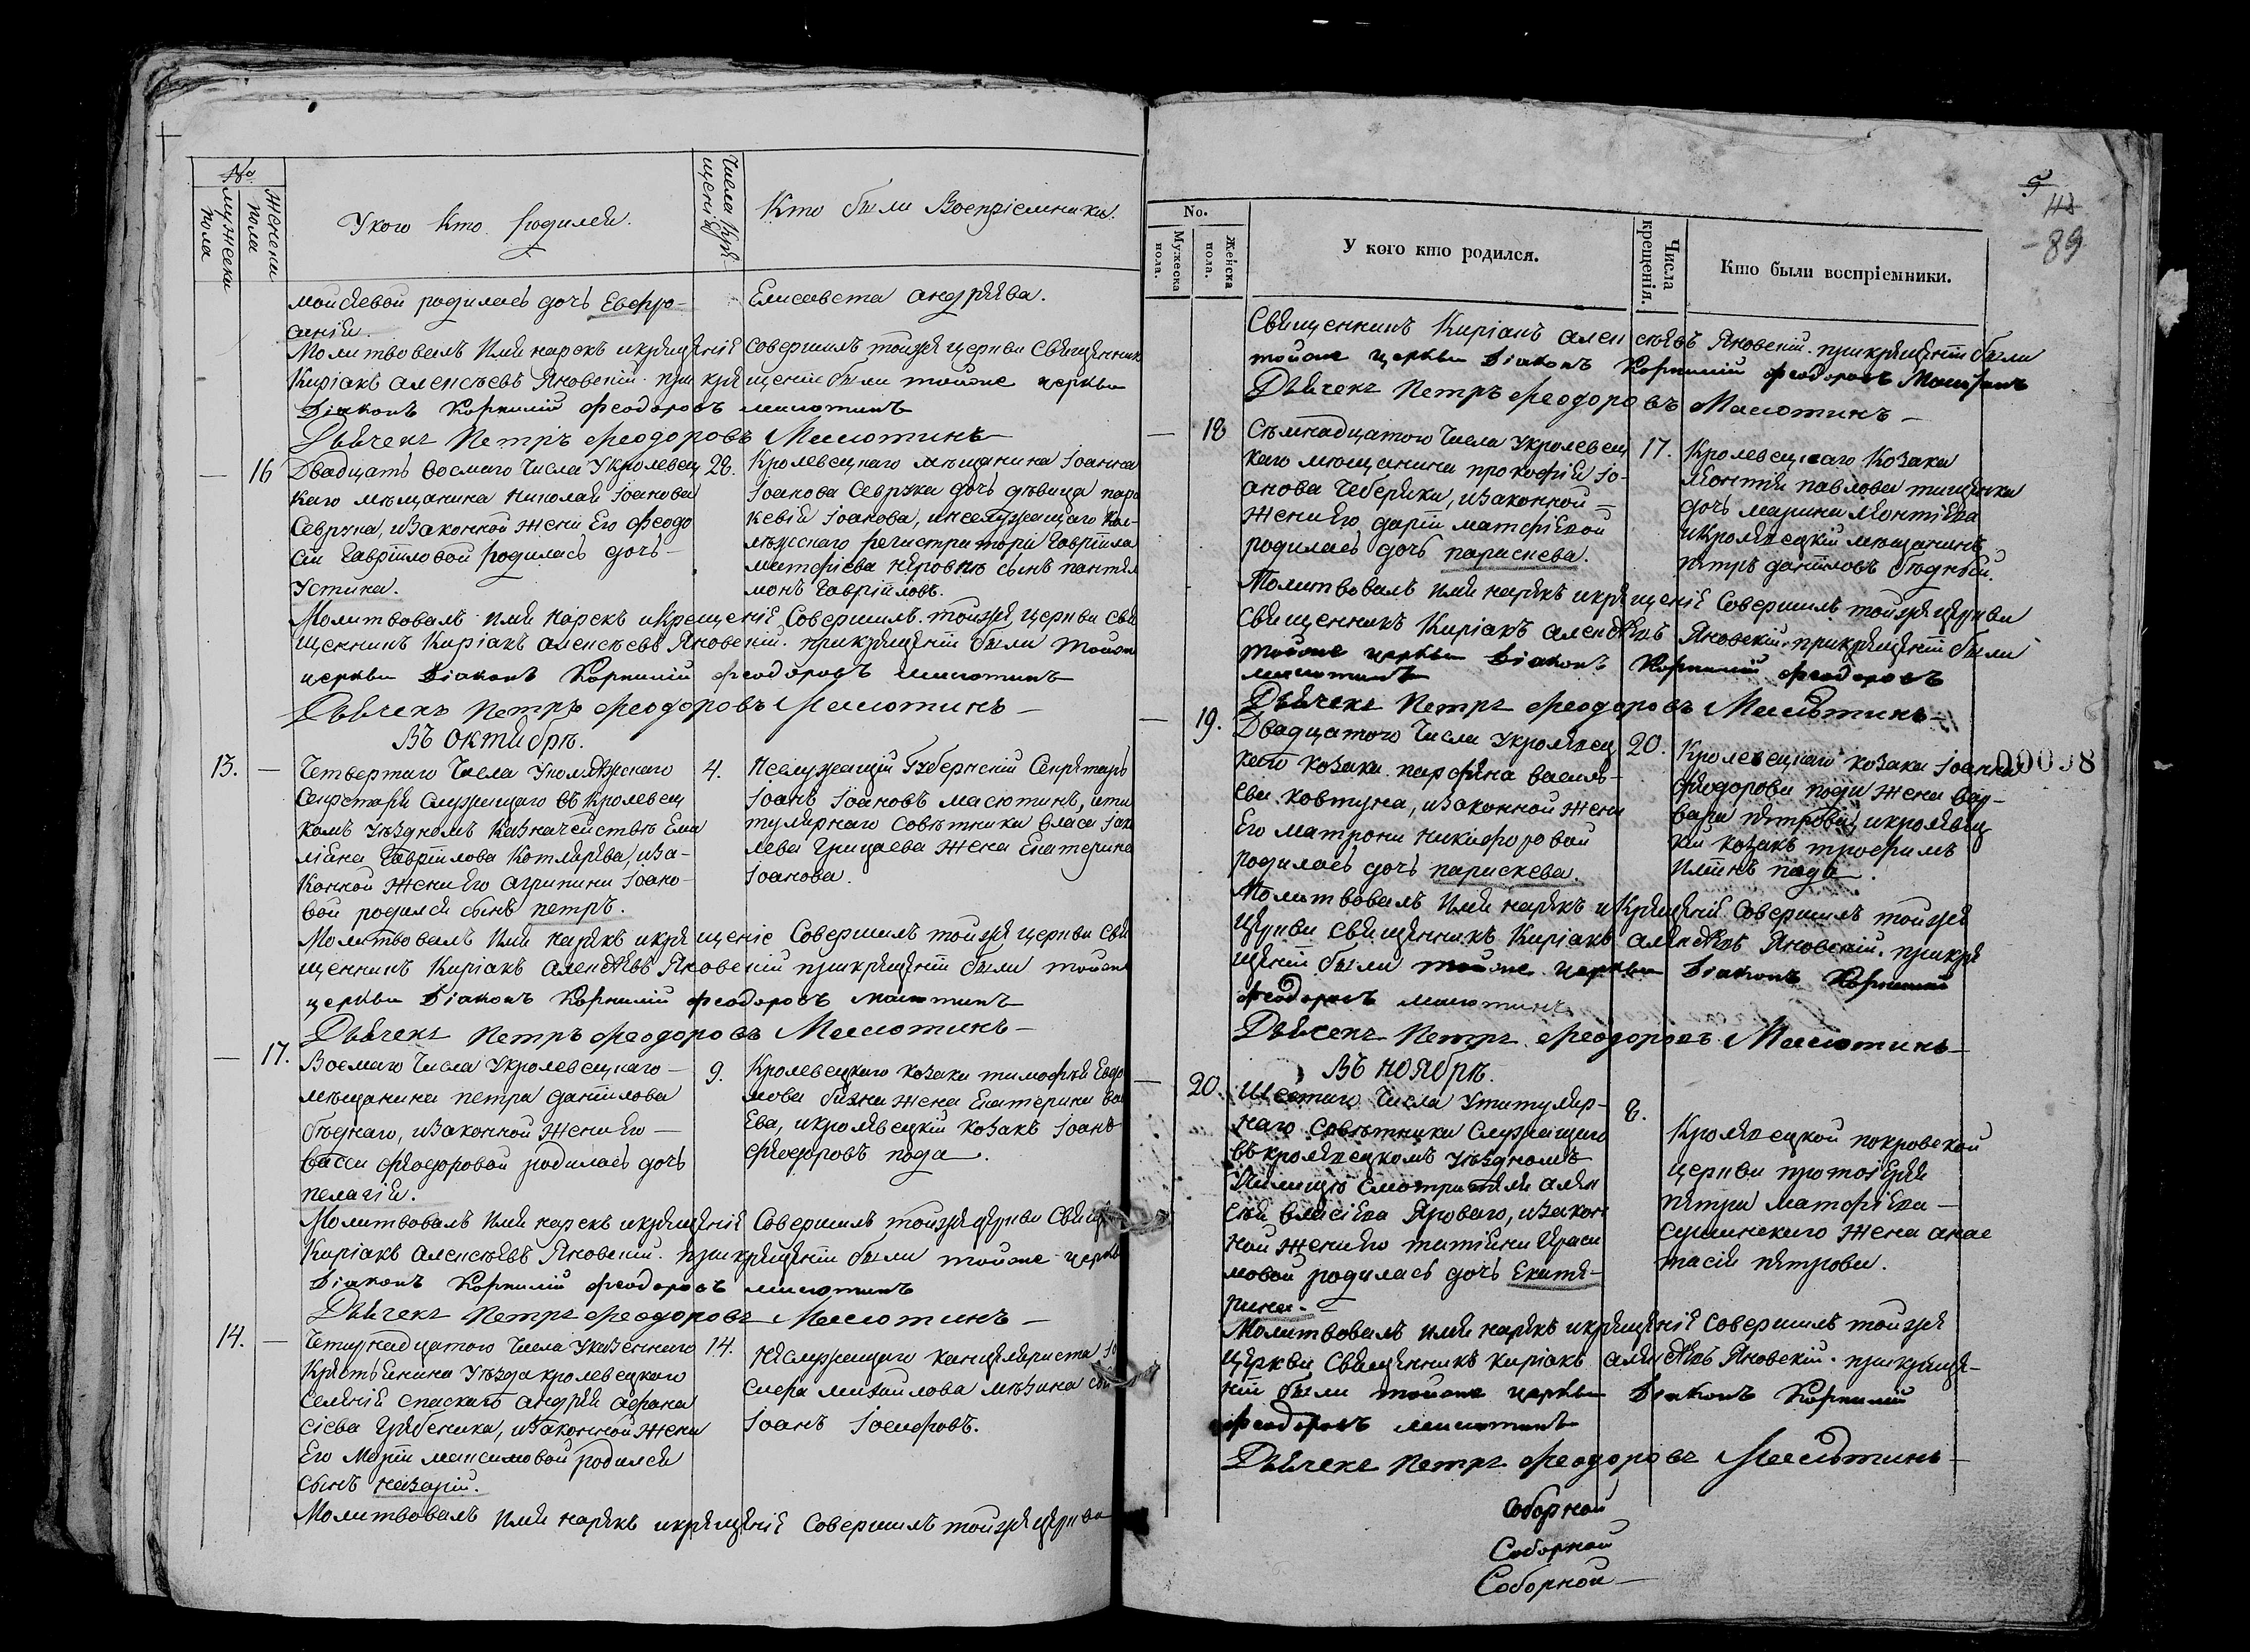 №
Мужеска пола
Женска пола
У кого кто родился.
Числа крещенія
Кто были Воспріемники.
моисѣевой родилась дочь Евфро-
синія.
Елисавета андрѣева.
Молитвовалъ Имя нарекъ икрещеніе совершилъ тоиже церкви Священникъ
Киріакъ алексѣевъ Яновскій. при крещеніи были тойже церкви
Діаконъ Корнилій феодоровъ масютинъ
Дьячекъ Петръ феодоровъ Масютинъ
16
Двадцать восмаго Числа Укролевец
каго мѣщанина николая Іоанова
Севрука, иЗаконной Жени Его феодо
сіи Гавріиловой родилась дочь
Устина.
28.
Кролевецкаго мѣщанина Іоанна
Іоанова Севрука дочь дѣвица пара
кевія Іоанова, инеслужащаго Кол-
лѣжскаго регистратора Гавріила
матфіева сынъ пантел
монъ Гавріиловъ.
Молитвовалъ имя Нарекъ икрещеніе Совершилъ тоиже церкви свя
щенникъ Киріакъ алексѣевъ Яновскій. прикрещеніи были тойже
церкви Діаконъ Корнилій феодоровъ масютинъ
Дьячекъ Петръ феодоровъ Масютинъ
Въ октябрѣ.
13.
Четвертаго Числа Уколѣжскаго
Секретаря Служащаго въ Кролевец
комъ Уѣздномъ Казначействѣ Еми
ліана Гавріилова Котлярева, иЗа-
конной Жени Его агрипини Іоано-
вой родился сынъ петръ.
4.
Неслужащій Губернскій Секретарь
Іоанъ Іоановъ масютинъ, ити
тулярнаго Совѣтника власа Іако
лева Грицаева Жена Екатерина
Іоанова.
Молитвовалъ Имя нарекъ икрещеніе Совершилъ тоиже церкви свя
щенникъ Киріакъ алексѣевъ Яновскій прикрещеніи были тойже
церкви Діаконъ Корнилій феодоровъ масютинъ
Дьячекъ Петръ феодоровъ Масютинъ
17.
Восмаго Числа Укролевецкаго
мѣщанина петра даніилова
бѣднаго, иЗаконной Жени Его
васси феодоровой родилась дочь
пелагія.
9.
Кролевецкаго козака тимофѣя Евдо
мова Жена Екатерина
Ева, икролевецкій козакъ Іоанъ
феодоровъ пода.
Молитвовалъ Имя нарекъ икрещеніе Совершилъ тоиже церкви Священ
Киріакъ алексѣевъ Яновскій. прикрещеніи были тойже церкви
Діаконъ Корнилій феодоровъ масютинъ
Дьячекъ Петръ феодоровъ Масютинъ
14.
Четирнадцатого Числа Указеннаго
Крестьянина Уѣзда кролевецкаго
селенія спаскаго андрея афана
сіева Гребеника, иЗаконной Жени
Его Маріи максимовой родился
сынъ назарій.
14.
Неслужащаго канцеляриста Іо
сифа михаилова мѣзина сынъ
Іоанъ Іосифовъ.
Молитвовалъ имя нарекъ икрещеніе Совершилъ тоиже церкви
89
No.
Мужеска пола.
Женска пола.
У кого кто родился.
Числа крещенія.
Кто были воспріемники.
Священникъ Киріакъ алексѣевъ Яновскій. прикрещеніи были
тойже церкви Діаконъ Корнилій феодоровъ Масютинъ
Дьячекъ Петръ феодоровъ Масютинъ
18
Съмнадцатого Числа Укролевец
каго мѣщанина прокофія Іо-
анова Чеберяки, иЗаконной
Жени Его даріи матфіевой
родилась дочь параскева.
17.
Кролевецкаго Козака
леонтія павлова тищенка
дочь марина леонтіева
икролевецкій мѣщанинъ
петръ даніиловъ бѣдный.
Молитвовалъ Имя нарекъ икрещеніе Совершилъ тоиже церкви
Священникъ Киріакъ алексѣевъ Яновскій. прикрещеніи были
тойже церкви Діаконъ Корнилій феодоровъ
масютинъ
Дьячекъ Петръ феодоровъ Масютинъ
19.
Двадцатого Числа Укролевец
каго козака парфена василь-
ева ковтуна, иЗаконной Жени
Его матрони никифоровой
родилась дочь параскева.
20.
Кролевецкаго козака Іоанна
феодорова поди Жена вар-
вара петрова, икролевец
кій козакъ трофимъ
пода
Молитвовалъ Имя нарекъ икрещеніе Совершилъ тоиже
Церкви священникъ Киріакъ алексѣевъ Яновскій. прикре
щеніи были тойже церкви Діаконъ Корнилій
феодоровъ масютинъ
Дьячекъ Петръ феодоровъ Масютинъ
Въ ноябрѣ.
20.
Шестаго Числа Утитуляр-
наго совѣтника Служащаго
въкролевецкомъ Уѣздномъ
Училищѣ Смотрителя алек
сѣя власіева Яроваго, иЗакон
ной Жени Его татіяни Гераси
мовой родилась дочь Екате-
рина.
8.
Кролевецкой покровской
церкви протоіерея
петра матфіева
Жена анас
тасія петрова.
Молитвовалъ имя нарекъ икрещеніе совершилъ тоиже
Церкви Священникъ киріакъ алексѣевъ Яновскій. прикреще-
ніи были тойже церкви Діаконъ Корнилій
феодоровъ масютинъ
Дьячекъ Петръ феодоровъ Масютинъ
Соборной
Соборной
Соборной